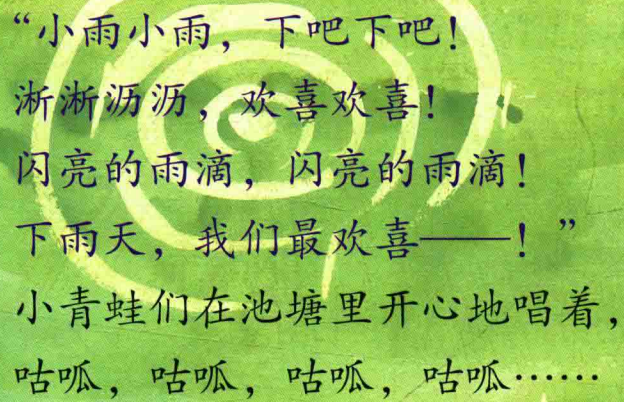 “小雨小雨，下吧下吧！
淅淅沥沥，欢喜欢喜！
闪亮的雨滴，闪亮的雨滴！
下雨天，我们最欢喜——！”
小青蛙们在池塘里开心地唱着，
咕呱，咕呱，咕呱，咕呱……